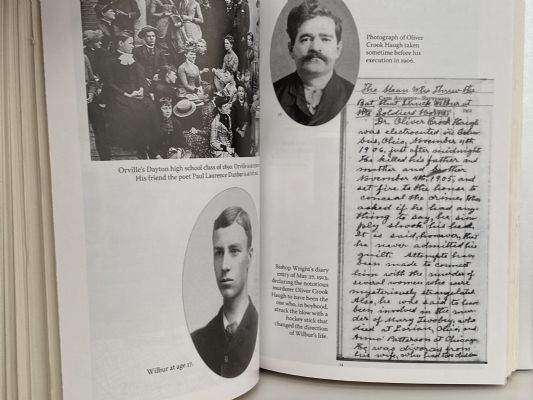 Orville's Dayton high school class of 1890. Orville is
His friend the poet Paul Laurence Dunbar is
Wilbur at age 17.
Photograph of Oliver
Crook Haugh taken
sometime before his
execution in 1906.
Bishop Wright's diary
entry of May 27, 1913,
declaring the notorious
murderer Oliver Crook
Haugh to have been the
one who, in boyhood,
struck the blow with a
hockey stick that
changed the direction
of Wilbur's life.
The Man Who Threw the
Bat that Struck Wilbur at
the Soldiers Home.
Dr. Oliver Crook Haugh
was electrocuted in Colum-
bus, Ohio, November 4th
1906, just after midnight
He killed his father and
mother and brother
November 4th, 1905, and
set fire to the house to
conceal the crime. When
asked if he had any
thing to say, he sim
ply shook his head.
It is said, however, that
he never admitted his
guilt. Attempts have
been made to connect
him with the murder of
several women who were
mysteriously strangulated
Also, he was said to have
been involved in the mur-
der of Mary Twohey, who
died at Lorian, Ohio, and
Anna Patterson at Chicago.
He was divorced from
his wife, who had two
14